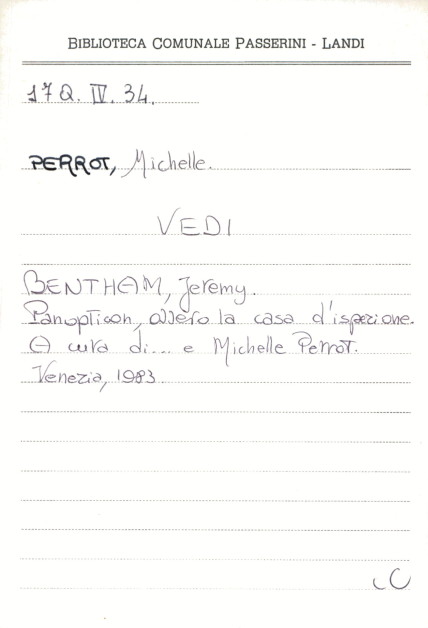 BIBLIOTECA COMUNALE PASSERINI - LANDI
17 Q. IV. 34.
PERROT, Michelle.
VEDI
BENTHAM, Jeremy.
Panopticon, ovvero la casa d'ispezione.
A cura di... e Michelle Perrot.
Venezia, 1983